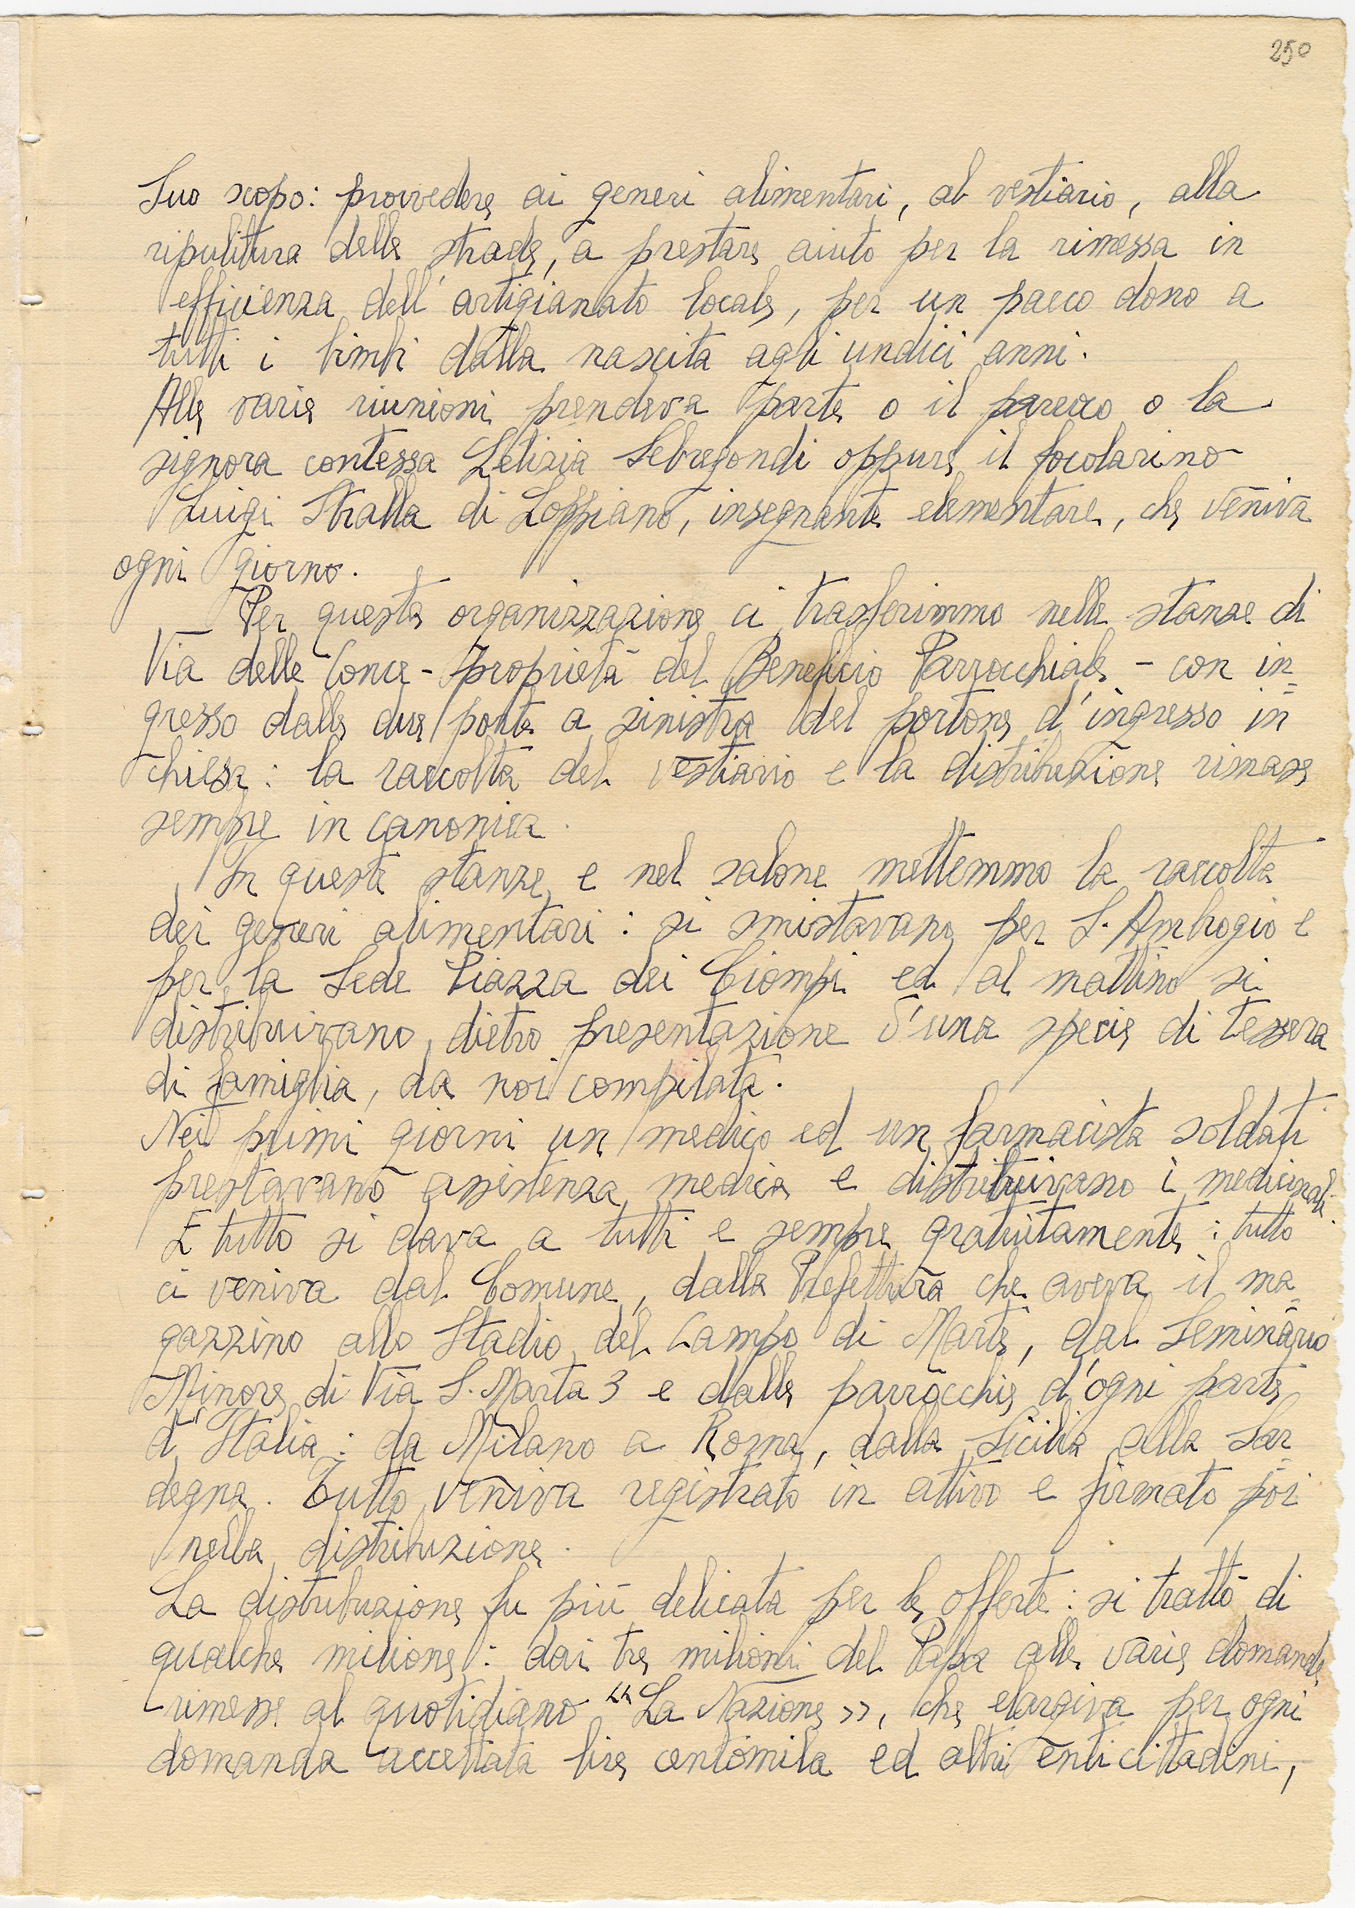 250
Suo scopo: provvedere ai generi alimentari, al vestiario, alla
ripulitura delle strade, a prestare aiuto per la rimessa in
efficienza dell'artigianato locale, per un pacco dono a
tutti i bimbi dalla nascita agli undici anni.
Alle varie riunioni prendeva parte o il parroco o la
signora contessa Letizia Sebregondi oppure il focolarino
Luigi Stralla di Loppiano, insegnante elementare, che veniva
ogni giorno.
Per questa organizzazione ci trasferimmo nelle stanze di
Via delle Conce - proprietà del Beneficio Parrocchiale - con in=
gresso dalle due porte a sinistra del portone d'ingresso in
chiesa: la raccolta del vestiario e la distribuzione rimase
sempre in canonica.
In queste stanze e nel salone mettemmo la raccolta
dei generi alimentari: si smistavano per S. Ambrogio e
per la Sede Piazza dei Ciompi ed al mattino si
distribuivano, dietro presentazione d'una specie di tessera
di famiglia, da noi compilata.
Nei primi giorni un medico ed un farmacista soldati
prestavano assistenza medica e distribuivano i medicinali.
E tutto si dava a tutti e sempre gratuitamente: tutto
ci veniva dal Comune, dalla Prefettura che aveva il ma=
gazzino allo Stadio del Campo di Marte, dal Seminario
Minore di Via S. Marta 3 e dalle parrocchie d'ogni parte
d'Italia: da Milano a Roma, dalla Sicilia alla Sar=
degna. Tutto veniva registrato in attivo e firmato poi
nella distribuzione.
La distribuzione fu più delicata per le offerte: si trattò di
qualche milione: dai tre milioni del Papa alle varie domande
rimesse al quotidiano "La Nazione», che elargiva per ogni
domanda accettata lire centomila ed altri enti cittadini,